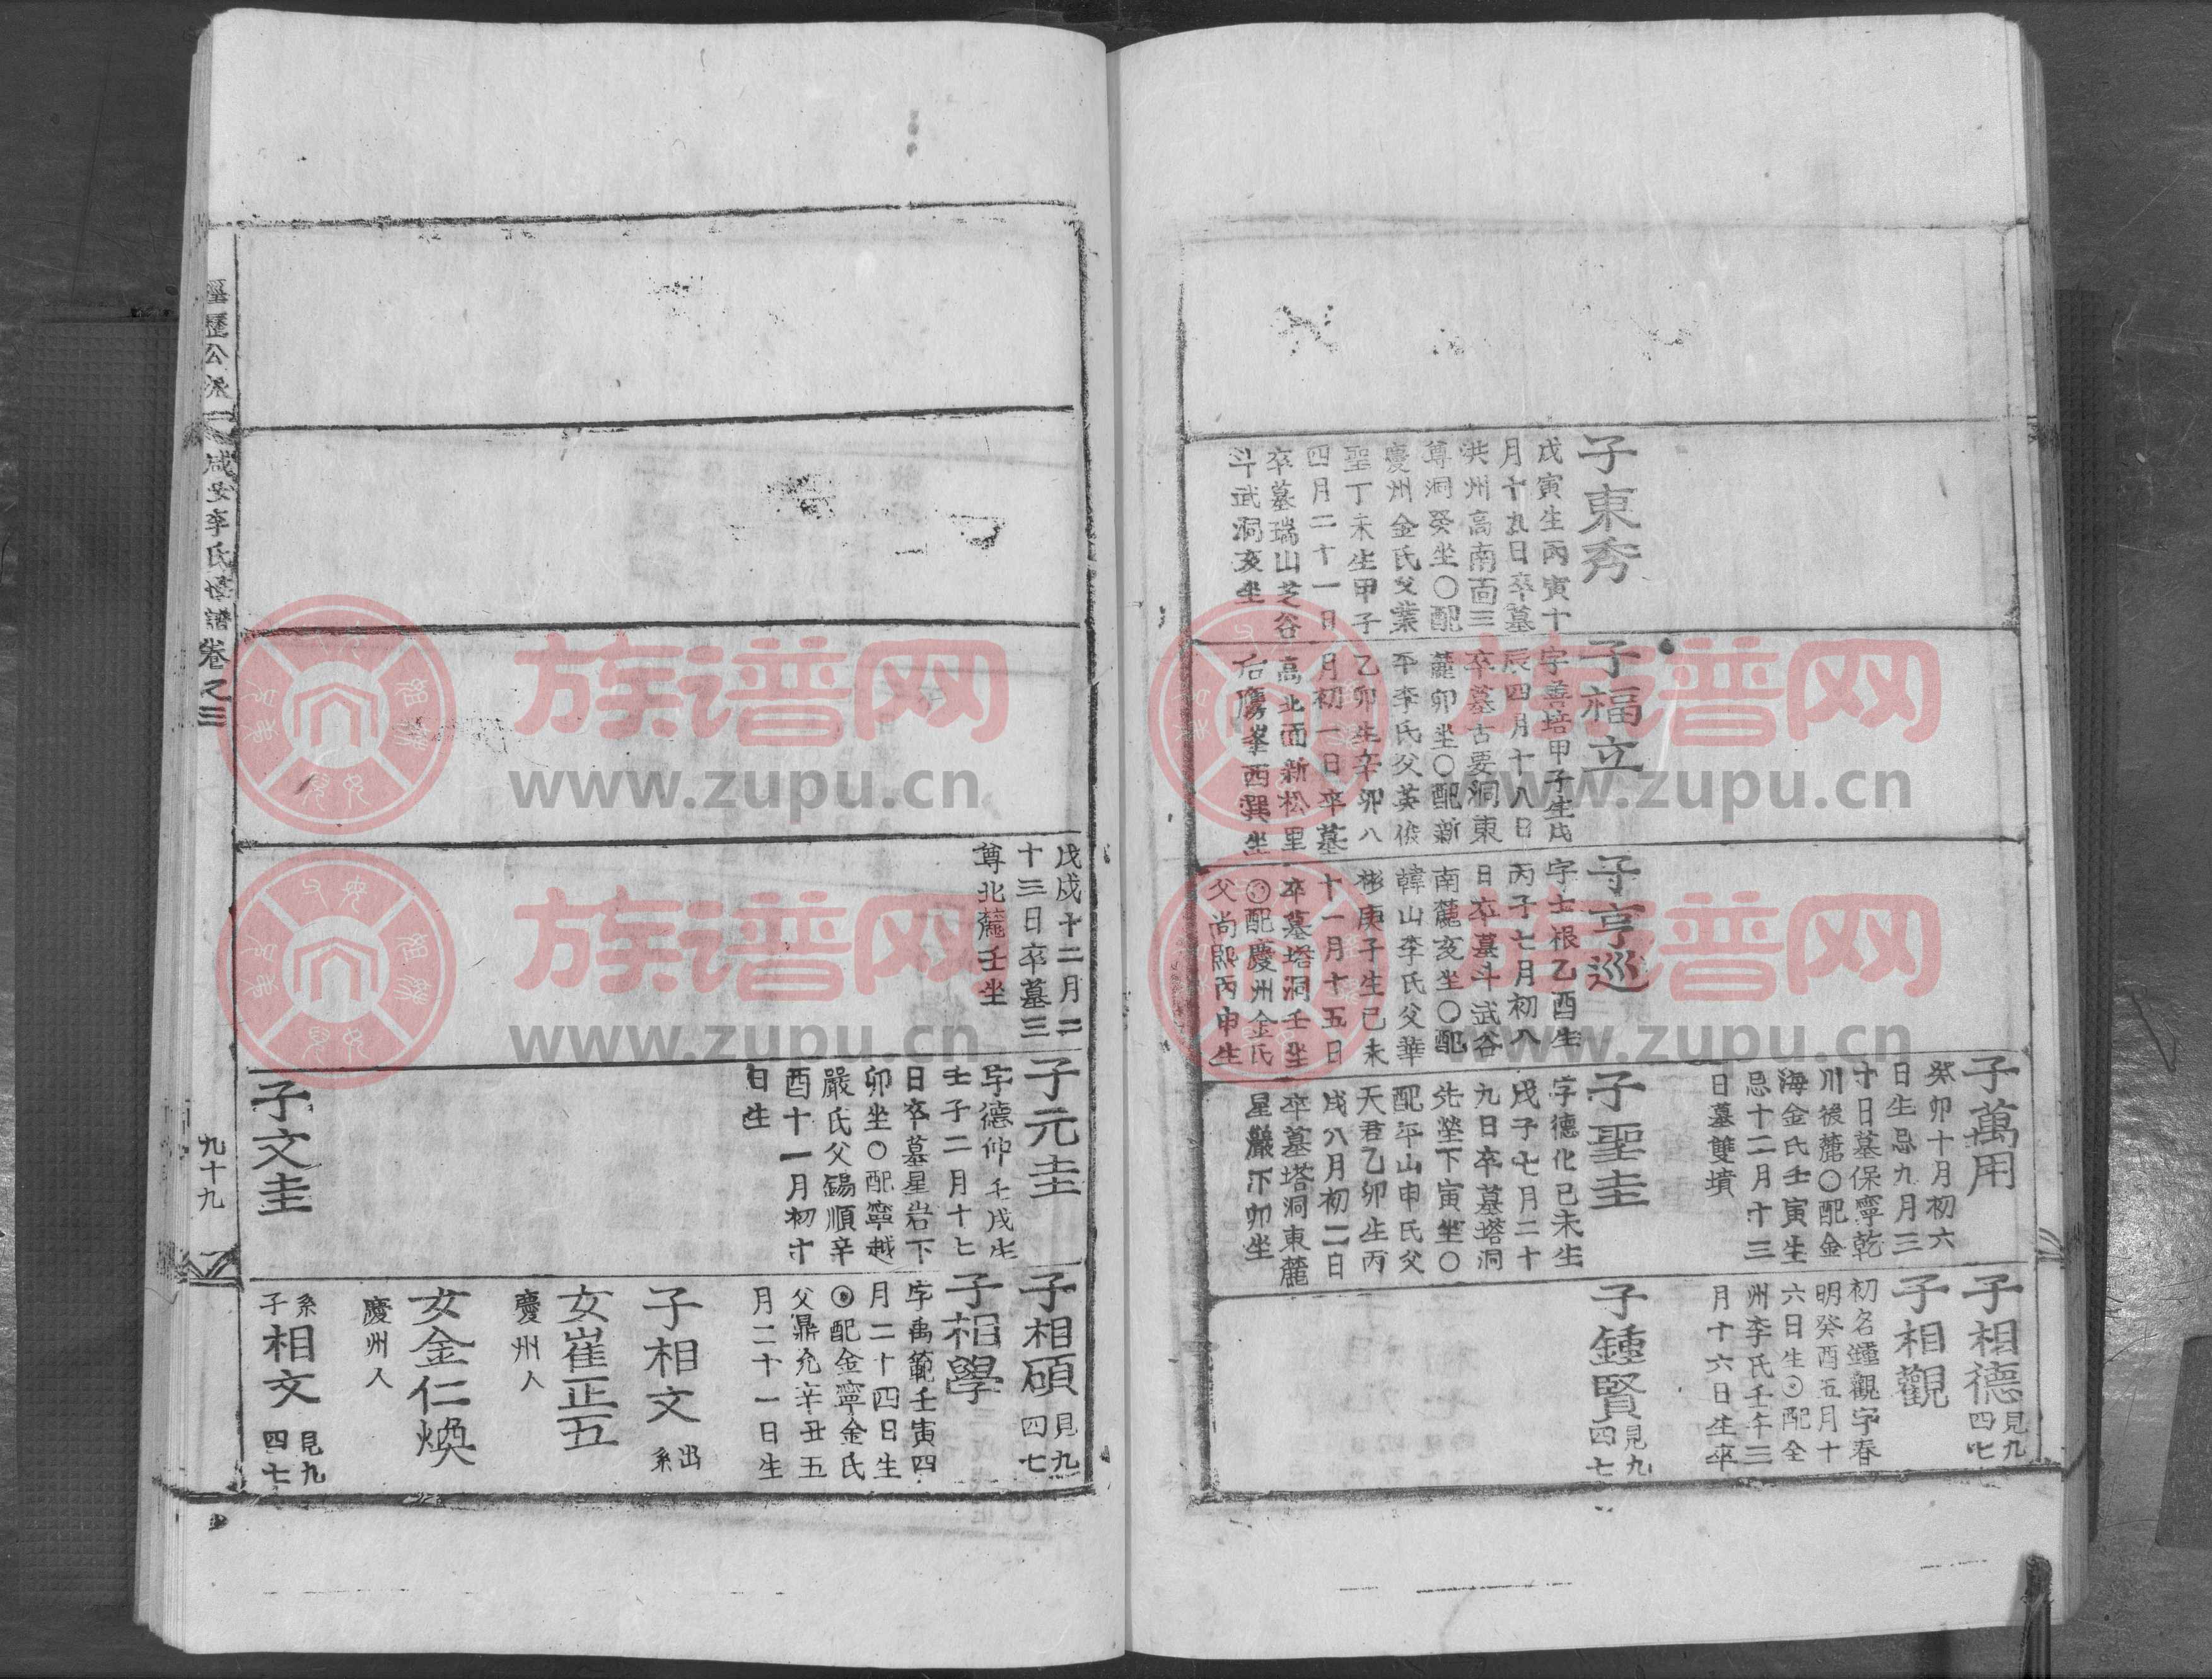 子東秀
戊寅生丙寅十
月十九日卒墓
洪州高南面三
尊洞癸坐〇配
慶州金氏父業
聖丁未生甲子
四月二十一日
卒墓瑞山芝谷
斗武洞亥坐
子福立
字善培甲子生戊
辰四月十八日
卒墓古要洞東
麓卯坐〇配新
平李氏父英俊
乙卯生辛卯八
月初一日卒墓
高北面新松里
后鷹峯西巽坐
子亨巡
字士根乙酉生
丙子七月初八
日卒墓斗武谷
南麓亥坐〇配
韓山李氏父華
彬庚子生己未
十一月十五日
卒墓塔洞壬坐
◎配慶州金氏
父尚熙丙申生
子萬用
癸卯十月初六
日生忌九月三
十日墓保寧乾
川後麓〇配金
海金氏壬寅生
忌十二月十三
日墓雙墳
子聖圭
字德化己未生
戊子七月二十
九日卒墓塔洞
先塋下寅坐〇
配平山申氏父
天君乙卯生丙
戌八月初二日
卒墓塔洞東麓
星巖下卯坐
子相德 見九四七
子相觀
初名鍾觀字春
明癸酉五月十
六日生◎配全
州李氏壬午三
月十六日生卒
子鍾賢 見九四七
戊戌十二月二
十三日卒墓三
尊北麓壬坐
子元圭
字德仲壬戌生
壬子二月十七
日卒墓星岩下
卯坐〇配寧越
嚴氏父錫順辛
酉十一月初十
日生
子文圭
子相碩 見九四七
子相學
字禹範壬寅四
月二十四日生
◎配金寧金氏
父鼎允辛丑五
月二十一日生
子相文 出系
女崔正五
慶州人
女金仁煥
慶州人
系子相文 見九四七
經歷公派
咸安李氏世譜卷之三
九十九
族谱网
www.zupu.cn
族谱网
www.zupu.cn
族谱网
www.zupu.cn
族谱网
www.zupu.cn